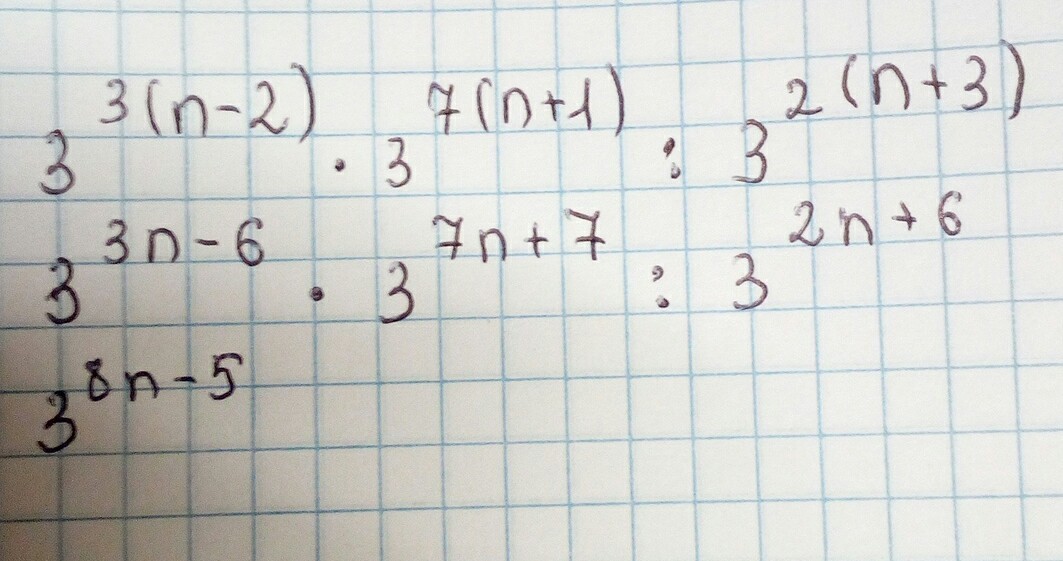 3^{3(n-2)} · 3^{7(n+1)} : 3^{2(n+3)}
3^{3n-6} · 3^{7n+7} : 3^{2n+6}
3^{8n-5}